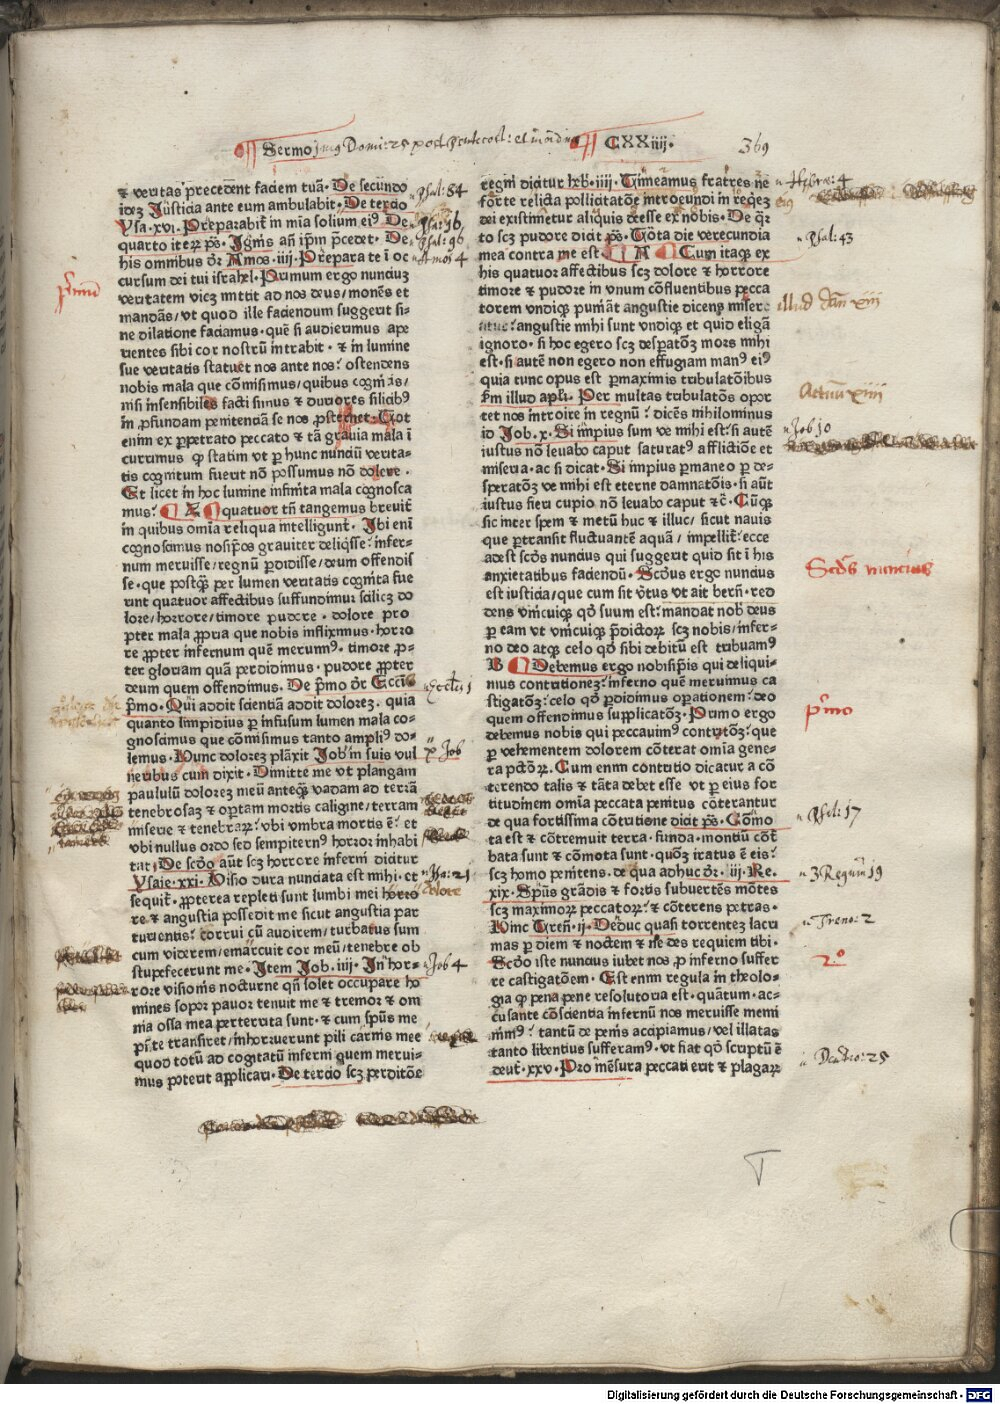 Sermo CXXiiij.
369
⁊ veritas precedent faciem tuā. De secundo
idez Justicia ante eum ambulabit. De tercio
Ysa. xvi. Preparabit̄ in mīa solium ei⁹. De
quarto iterꝝ ps. Ignis añ ip̄m p̄cedet. De
his omnibus dr̄ Amos. iiij. Prepara te ī oc
cursum dei tui israhel. Primum ergo nunciuz
veritatem vicz mittit ad nos deus, monēs et
mandās, vt quod ille faciendum suggerit si⸗
ne dilatione faciamus. quē si audierimus ape
rientes sibi cor nostrū intrabit. ⁊ in lumine
sue veritatis statuet nos ante nos: ostendens
nobis mala que cōmisimus, quibus cognitis,
nisi insensibiles facti simus ⁊ duriores silicib⁹
in ꝓfundam penitenciā se nos ꝓsternet. Tot
enim ex ꝑpetrato peccato ⁊ tā grauia mala ī
currimus ꝙ statim vt ꝑ hunc nunciū verita⸗
tis cognitum fuerit nō possumus nō dolere.
Et licet in hoc lumine infinita mala cognosca
mus: A quatuor tñ tangemus breuit̄
in quibus om̄ia reliqua intelligunt̄. Ibi eni
cognoscimus nosip̄os grauiter deliq̄sse: infer⸗
num meruisse, regnū ꝑdidisse, deum offendis
se. que postq̄ꝫ per lumen veritatis cognita fue
rint quatuor affectibus suffundimur scilicz do
lore, horrore, timore pudore. dolore pro
pter mala ꝓpria que nobis infliximus. horro
re ꝓpter infernum quē meruim⁹. timore ꝓp⸗
ter gloriam quā perdidimus. pudore ꝓpter
deum quem offendimus. De p̄mo dr̄ Eccūs
p̄mo. Qui addit scientiā addit dolorez. quia
quanto limpidius ꝑ infusum lumen mala co⸗
gnoscimus que cōmisimus tanto ampli⁹ do⸗
lemus. Hunc dolorez plāxit Job in suis vul
neribus cum dixit. Dimitte me vt plangam
paululū dolorez meū anteq̄ꝫ vadam ad terrā
tenebrosaz ⁊ opertam mortis caligine, terram
miserie ⁊ tenebrarꝝ: vbi vmbra mortis ē: et
vbi nullus ordo sed sempitern⁹ horror inhabi
tat. De scd̄o aūt scz horrore inferni dicitur
Ysaie. xxi. Visio dura nunciata est mihi. et
sequit̄. ꝓpterea repleti sunt lumbi mei horro
re. ⁊ angustia possedit me sicut angustia par
turientis: corrui cū audirem, turbatus sum
cum viderem, emarcuit cor meū, tenebre ob
stupefecerunt me. Item Job. iiij. In hor⸗
rore visionis nocturne qñ solet occupare ho
mines sopor pauor tenuit me ⁊ tremor ⁊ om
nia ossa mea perterrita sunt. ⁊ cum spūs me
pn̄te transiret, inhorruerunt pili carnis mee
quod totū ad cogitatū inferni quem merui⸗
mus poterit applicari. De tercio scz perditōe
regni dicitur heb. iiij. Timeamus fratres ne
forte relicta pollicitatōe introeundi in reqiez
dei existimetur aliquis deesse ex nobis. De q̄r
to scz pudore dicit ps. Tota die verecundia
mea contra me est. A Cum itaqꝫ ex
his quatuor affectibus scz dolore ⁊ horrore
timore ⁊ pudore in vnum cōfluentibus pecca
torem vndiqꝫ pumāt angustie dicens misere
angustie mihi sunt vndiqꝫ et quid eligā
ignoro. si hoc egero scz despatōz mors mihi
est. si autē non egero non effugiam man⁹ ei⁹
quia tunc opus est ꝑmaximis tribulatōibus
p̄m illud apli. Per multas tribulatōs opor
tet nos introire in regnū: dicēs nihilominus
id Job. x. Si impius sum ve mihi est: si autē
iustus nō leuabo caput saturat⁹ afflictiōe et
miseria. ac si dicat. Si impius ꝑmaneo ꝑ de⸗
speratōz ve mihi est eterne damnatōis. si aūt
iustus fieri cupio nō leuabo caput ⁊c̄. Cūqꝫ
sic inter spem ⁊ metū huc ⁊ illuc, sicut nauis
que ꝑtransit fluctuantē aquā, impellit̄: ecce
adest scd̄s nuncius qui suggerit quid sit ī his
anxietatibus faciendū. Scd̄us ergo nuncius
est iusticia, que cum sit v̄tus vt ait bern̄. red
dens vnicuiqꝫ qd̄ suum est: mandat nob̄ deus
ꝑ eam vt vnicuiqꝫ p̄dictorꝝ scz nobis, infer⸗
no deo atqꝫ celo qd̄ sibi debitū est tribuam⁹
B Debemus ergo nobisip̄is qui deliqui⸗
mus contritionez: inferno quē meruimus ca
stigatōz: celo qd̄ ꝑdidimus operationem: deo
quem offendimus supplicatōz. Primo ergo
debemus nobis qui peccauim⁹ contritōz: que
ꝑ vehementem dolorem cōterat om̄ia gene⸗
ra pctōrꝝ. Cum enim contritio dicatur a cō
terendo talis ⁊ tāta debet esse vt ꝑ eius for
titudinem om̄ia peccata penitus cōterantur
de qua fortissima cōtritione dicit ps. Cōmo
ta est ⁊ cōtremuit terra. funda. montiū cōt̄
bata sunt ⁊ cōmota sunt. quōz iratus ē eis:
scz homo penitens. de qua adhuc dr̄. iij. Re.
xix. Spūs grādis ⁊ fortis subuertēs mōtes
scz maximorꝝ peccatorꝝ: ⁊ cōterens petras.
Hinc Tren̄. ij. Deduc quasi torrentez lacri
mas ꝑ diem ⁊ noctem ⁊ nō des requiem tibi.
Scd̄o iste nuncius iubet nos ꝓ inferno suffer
re castigatōem. Est enim regula in theolo⸗
gia ꝙ pena pene resolutoria est. quātum. ac⸗
cusante cōscientia infernū nos meruisse memi
nim⁹: tantū de penis accipiamus, vel illatas
tanto libentius sufferam⁹. vt fiat qd̄ scriptū ē
deut̄. xxv. Pro mēsura peccati erit ⁊ plagarꝝ
Psal: 84
Psal: 96
Amos 4
p̄mū
x Job
Isa: 21
Job 4
Hebre: 4
Psal: 43
Job 10
Scd̄s nuncius
p̄mo
Psal: 17
3 Regum 19
Treno: 2
2°
Deutro: 25
Digitalisierung gefördert durch die Deutsche Forschungsgemeinschaft - DFG